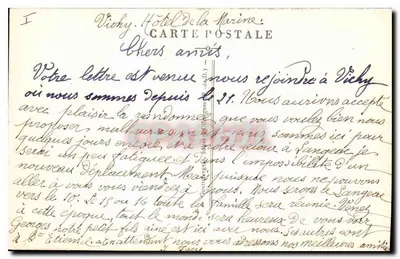 I
Vichy. Hôtel de la Marine.
CARTE POSTALE
Chers amis,
Votre lettre est venue nous rejoindre à Vichy
où nous sommes depuis le 21. Nous aurions accepté
avec plaisir la randonnée que vous voulez bien nous
proposer malheureusement nous sommes ici pour
quelques jours encore, et à notre retour à Langeac je
serai un peu fatiguée et dans l'impossibilité d'un
nouveau déplacement. Mais puisque nous ne pouvons
aller à vous vous viendrez à nous. Nous serons à Langeac
vers le 10. Le 15 ou 16 toute la famille sera réunie. Venez
à cette époque, tout le monde sera heureux de vous voir
Georges notre petit fils aîné est ici avec nous, les autres sont
à St Etienne. En attendant nous vous adressons nos meilleures amitiés